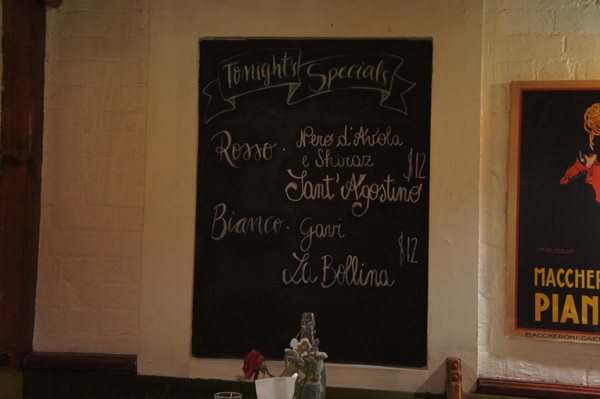 Tonight's Specials
Rosso. Nero d'Avola
e Shiraz $12
Sant'Agostino
Bianco. Gavi
$12
La Bollina
MACCHER
PIAN
MACCHERONI GAET